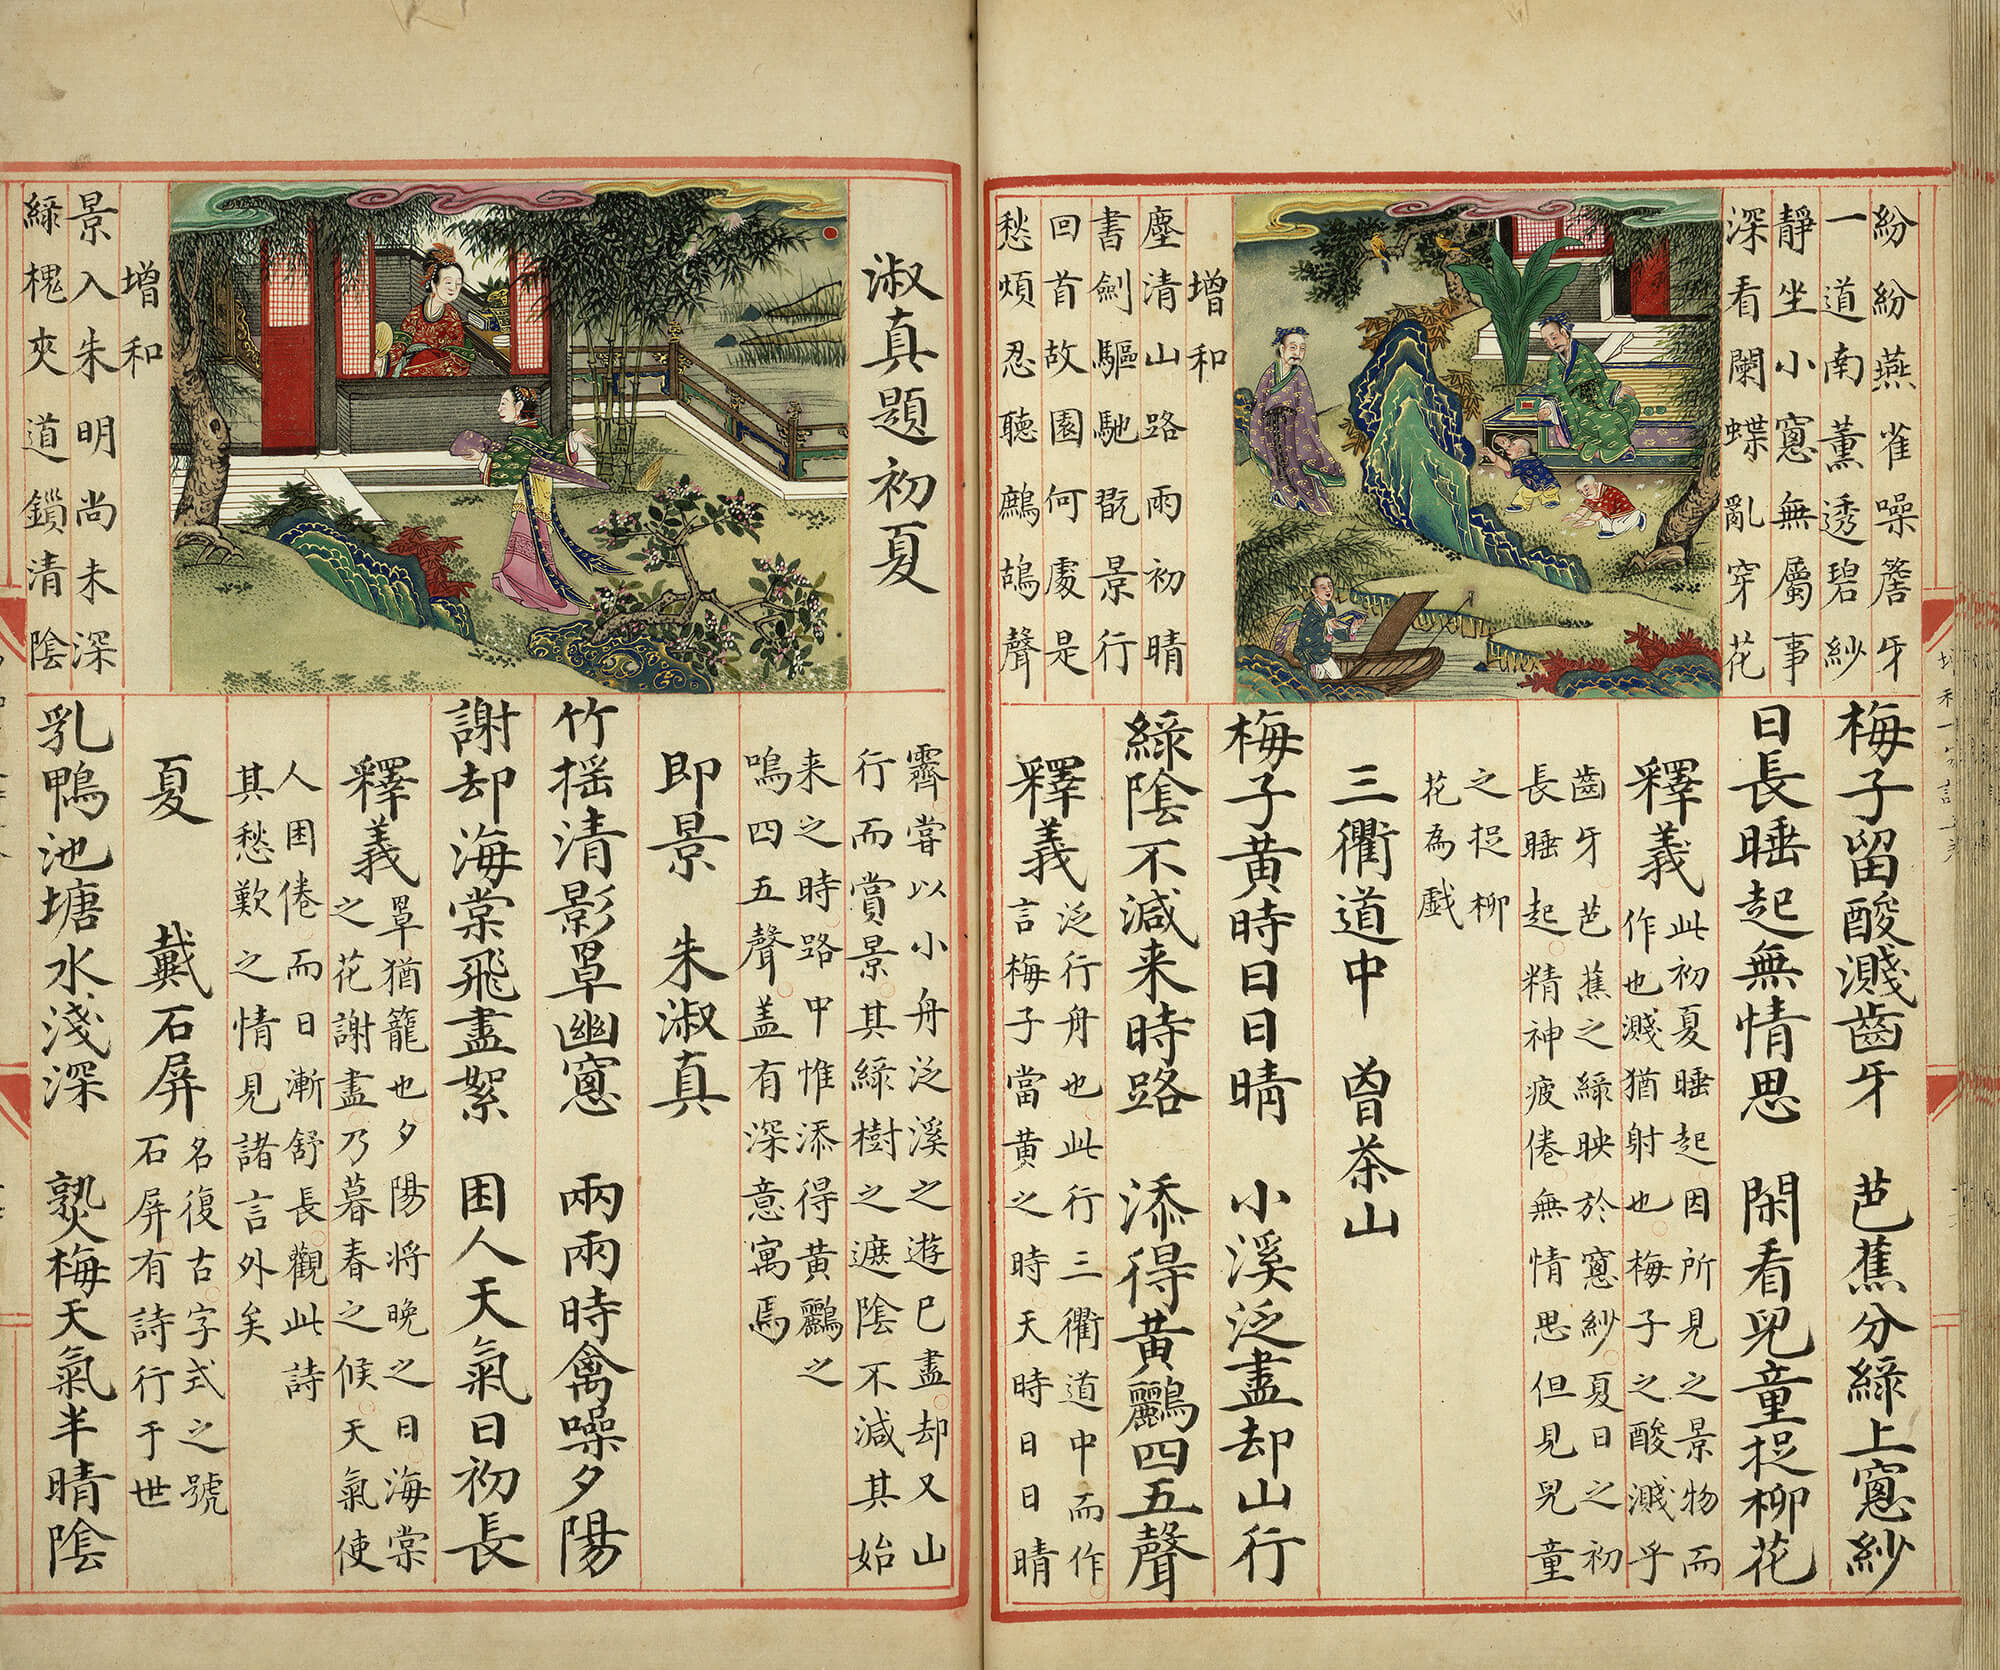 紛紛燕雀噪簷牙
一道南薰透碧紗
靜坐小窻無屬事
深看闌蝶亂穿花
增和
塵清山路雨初晴
書劍驅馳翫景行
回首故園何處是
愁煩忍聽鷓鴣聲
梅子留酸濺齒牙 芭蕉分綠上窻紗
日長睡起無情思 閑看兒童捉柳花
釋義 此初夏睡起因所見之景物而
作也濺猶射也梅子之酸濺乎
齒牙芭蕉之綠映於窻紗夏日之初
長睡起精神疲倦無情思但見兒童
之捉柳
花為戲
三衢道中 曾茶山
梅子黃時日日晴 小溪泛盡却山行
綠陰不減来時路 添得黃鸝四五聲
釋義 泛行舟也此行三衢道中而作
言梅子當黃之時天時日日晴
淑真題初夏
增和
景入朱明尚未深
綠槐夾道鎖清陰
霽嘗以小舟泛溪之遊已盡却又山
行而賞景其綠樹之遮陰不減其始
来之時路中惟添得黃鸝之
鳴四五聲盖有深意寓焉
即景 朱淑真
竹摇清影罩幽窻 兩兩時禽噪夕陽
謝却海棠飛盡絮 困人天氣日初長
釋義 罩猶籠也夕陽将晚之日海棠
之花謝盡乃暮春之候天氣使
人困倦而日漸舒長觀此詩
其愁歎之情見諸言外矣
夏 戴石屏 名復古字式之號
石屏有詩行于世
乳鴨池塘水淺深 熟梅天氣半晴陰